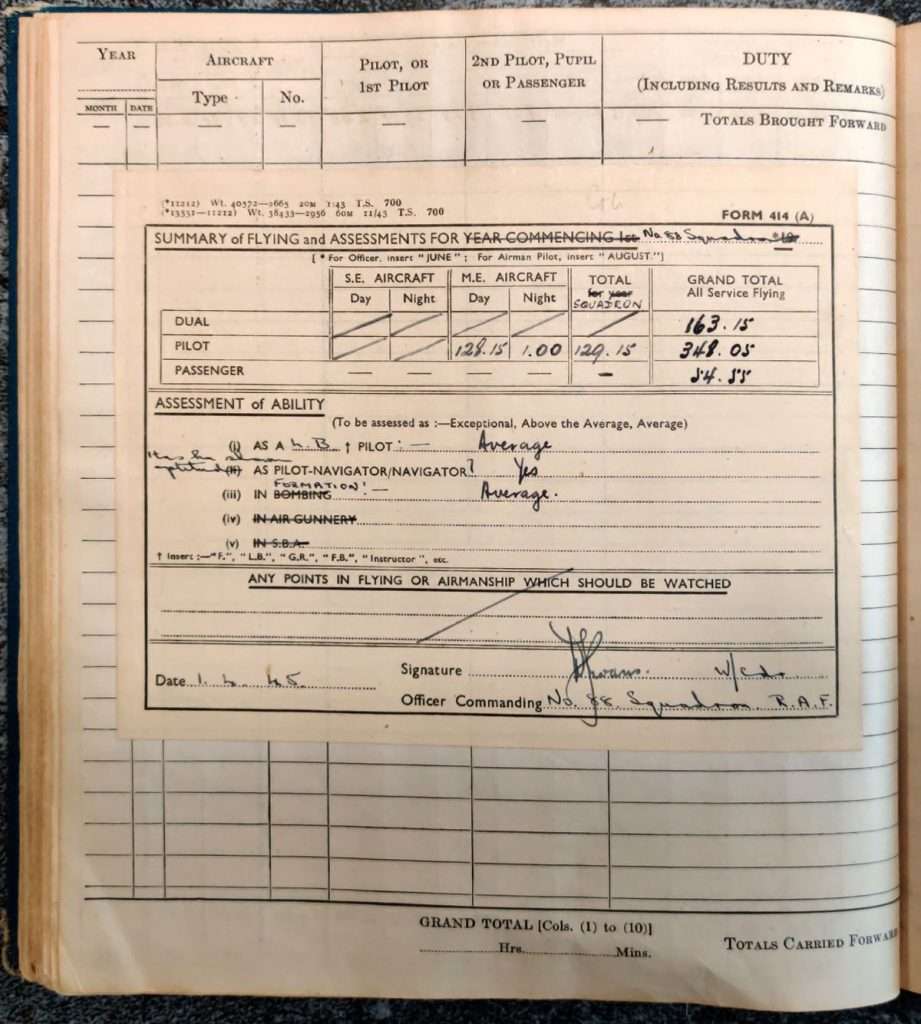 YEAR AIRCRAFT PILOT, OR 1ST PILOT 2ND PILOT, PUPIL OR PASSENGER DUTY (INCLUDING RESULTS AND REMARKS)
MONTH DATE Type No.
— — — — — — — TOTALS BROUGHT FORWARD
(*11212) Wt. 40572—2665 20M 1/43 T.S. 700
(*13351—11212) Wt. 38433—2956 60M 11/43 T.S. 700
FORM 414 (A)
SUMMARY of FLYING and ASSESSMENTS FOR YEAR COMMENCING 1st No. 88 Squadron *19
[* For Officer, insert "JUNE"; For Airman Pilot, insert "AUGUST."]
S.E. AIRCRAFT M.E. AIRCRAFT TOTAL for year SQUADRON GRAND TOTAL All Service Flying
Day Night Day Night
DUAL 163.15
PILOT 128.15 1.00 129.15 348.05
PASSENGER — — — — — 54.55
ASSESSMENT of ABILITY
(To be assessed as :—Exceptional, Above the Average, Average)
(i) AS A L.B. † PILOT :— Average
Has he shown aptitude (ii) AS PILOT-NAVIGATOR/NAVIGATOR? Yes
(iii) IN BOMBING FORMATION :— Average.
(iv) IN AIR GUNNERY
(v) IN S.B.A.
† Insert :—"F.", "L.B.", "G.R.", "F.B.", "Instructor", etc.
ANY POINTS IN FLYING OR AIRMANSHIP WHICH SHOULD BE WATCHED
Date 1. 4. 45. Signature W/Cdr
Officer Commanding No. 88 Squadron R.A.F.
GRAND TOTAL [Cols. (1) to (10)]
Hrs. Mins.
TOTALS CARRIED FORWARD